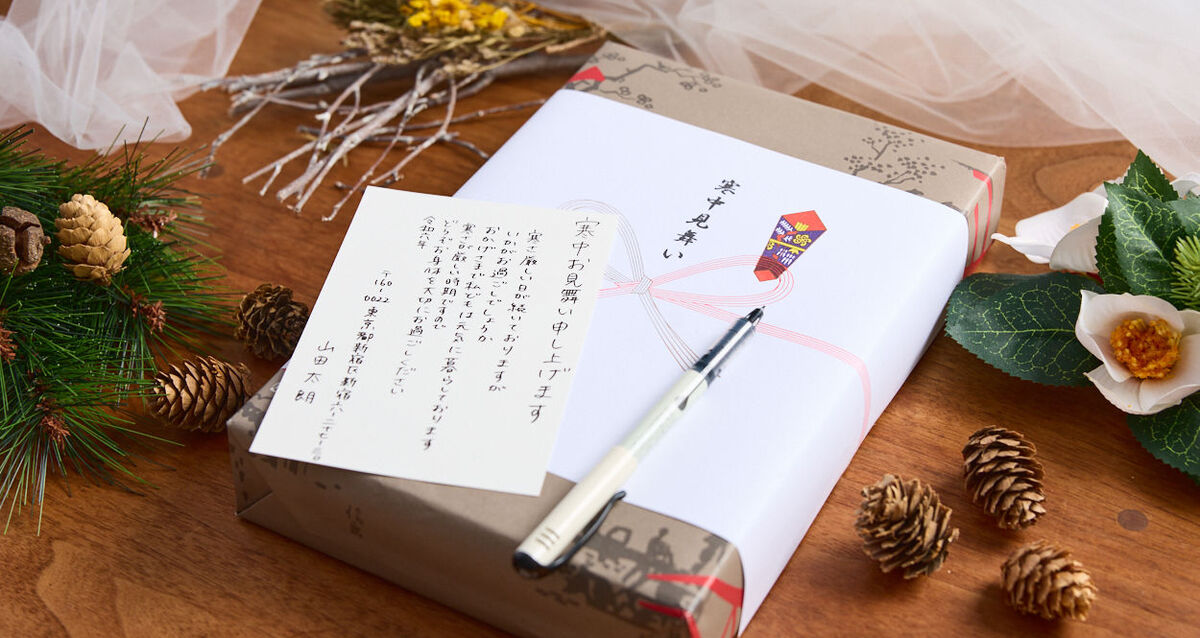 寒中見舞い
寒中お見舞い申し上げます
寒さ厳しい日が続いておりますが
いかがお過ごしでしょうか
おかげさまで私どもは元気に暮らしております
寒さが厳しい時期ですので
どうぞお身体を大切にお過ごしください
令和六年
〒160-0022 東京都新宿区新宿六-二十七-三〇
山田太朗